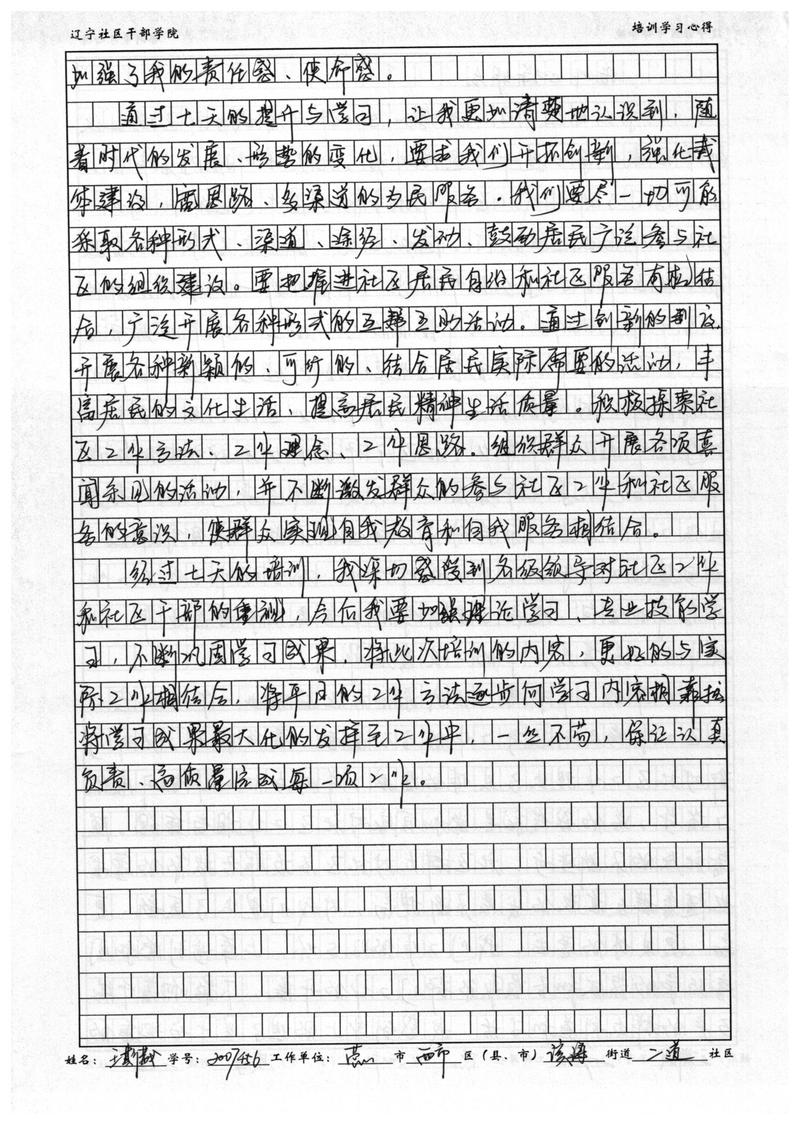 辽宁社区干部学院 培训学习心得
加强了我的责任感、使命感。
通过七天的提升与学习，让我更加清楚地认识到，随
着时代的发展、形势的变化，要求我们开拓创新，强化载
体建设，宽思路、多渠道的为民服务。我们要尽一切可能
采取各种形式、渠道、途径、发动、鼓励居民广泛参与社
区的组织建设。要把推进社区居民自治和社区服务有机结
合，广泛开展各种形式的互帮互助活动。通过创新的
开展各种新颖的、可行的、结合居民实际需要的活动，丰
富居民的文化生活、提高居民精神生活质量。积极探索社
区工作方法、工作理念、工作思路。组织群众开展各项喜
闻乐见的活动，并不断激发群众的参与社区工作和社区服
务的意识，使群众实现自我教育和自我服务相结合。
经过七天的培训，我深切感受到各级领导对社区工作
和社区干部的重视，今后我要加强理论学习、专业技能学
习，不断巩固学习成果，将此次培训的内容，更好的与实
际工作相结合，将平日的工作方法逐步向学习内容相靠拢
将学习成果最大化的发挥至工作中，一丝不苟，保证认真
负责、高质量完成每一项工作。
姓名： 学号：2007456 工作单位： 市 西市 区（县、市） 街道 二道 社区